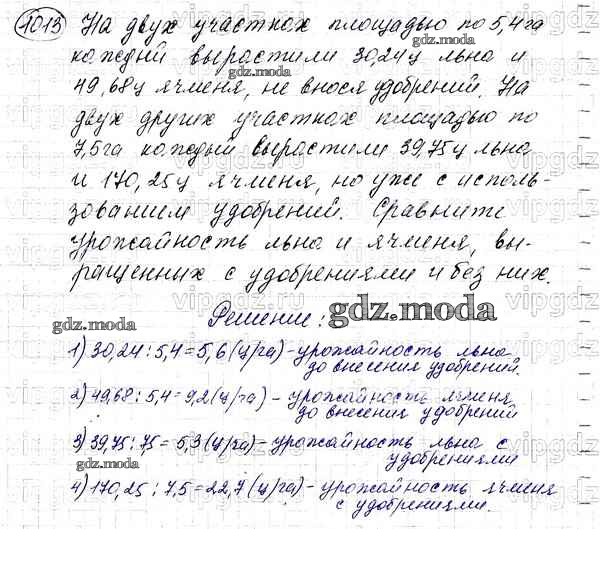 1013 На двух участках площадью по 5,4 га
каждый вырастили 30,24 ц льна и
gdz.moda
49,68 ц ячменя, не внося удобрений. На
двух других участках площадью по
gdz.moda
7,5 га каждый вырастили 39,75 ц льна
и 170,25 ц ячменя, но уже с исполь-
зованием удобрений. Сравните
урожайность льна и ячменя, вы-
ращенных с удобрениями и без них.
Решение:
gdz.moda
gdz.moda
1) 30,24 : 5,4 = 5,6 (ц/га) - урожайность льна
до внесения удобрений.
2) 49,68 : 5,4 = 9,2 (ц/га) - урожайность ячменя
до внесения удобрений
3) 39,75 : 7,5 = 5,3 (ц/га) - урожайность льна с
удобрениями
gdz.moda
4) 170,25 : 7,5 = 22,7 (ц/га) - урожайность ячменя
с удобрениями.